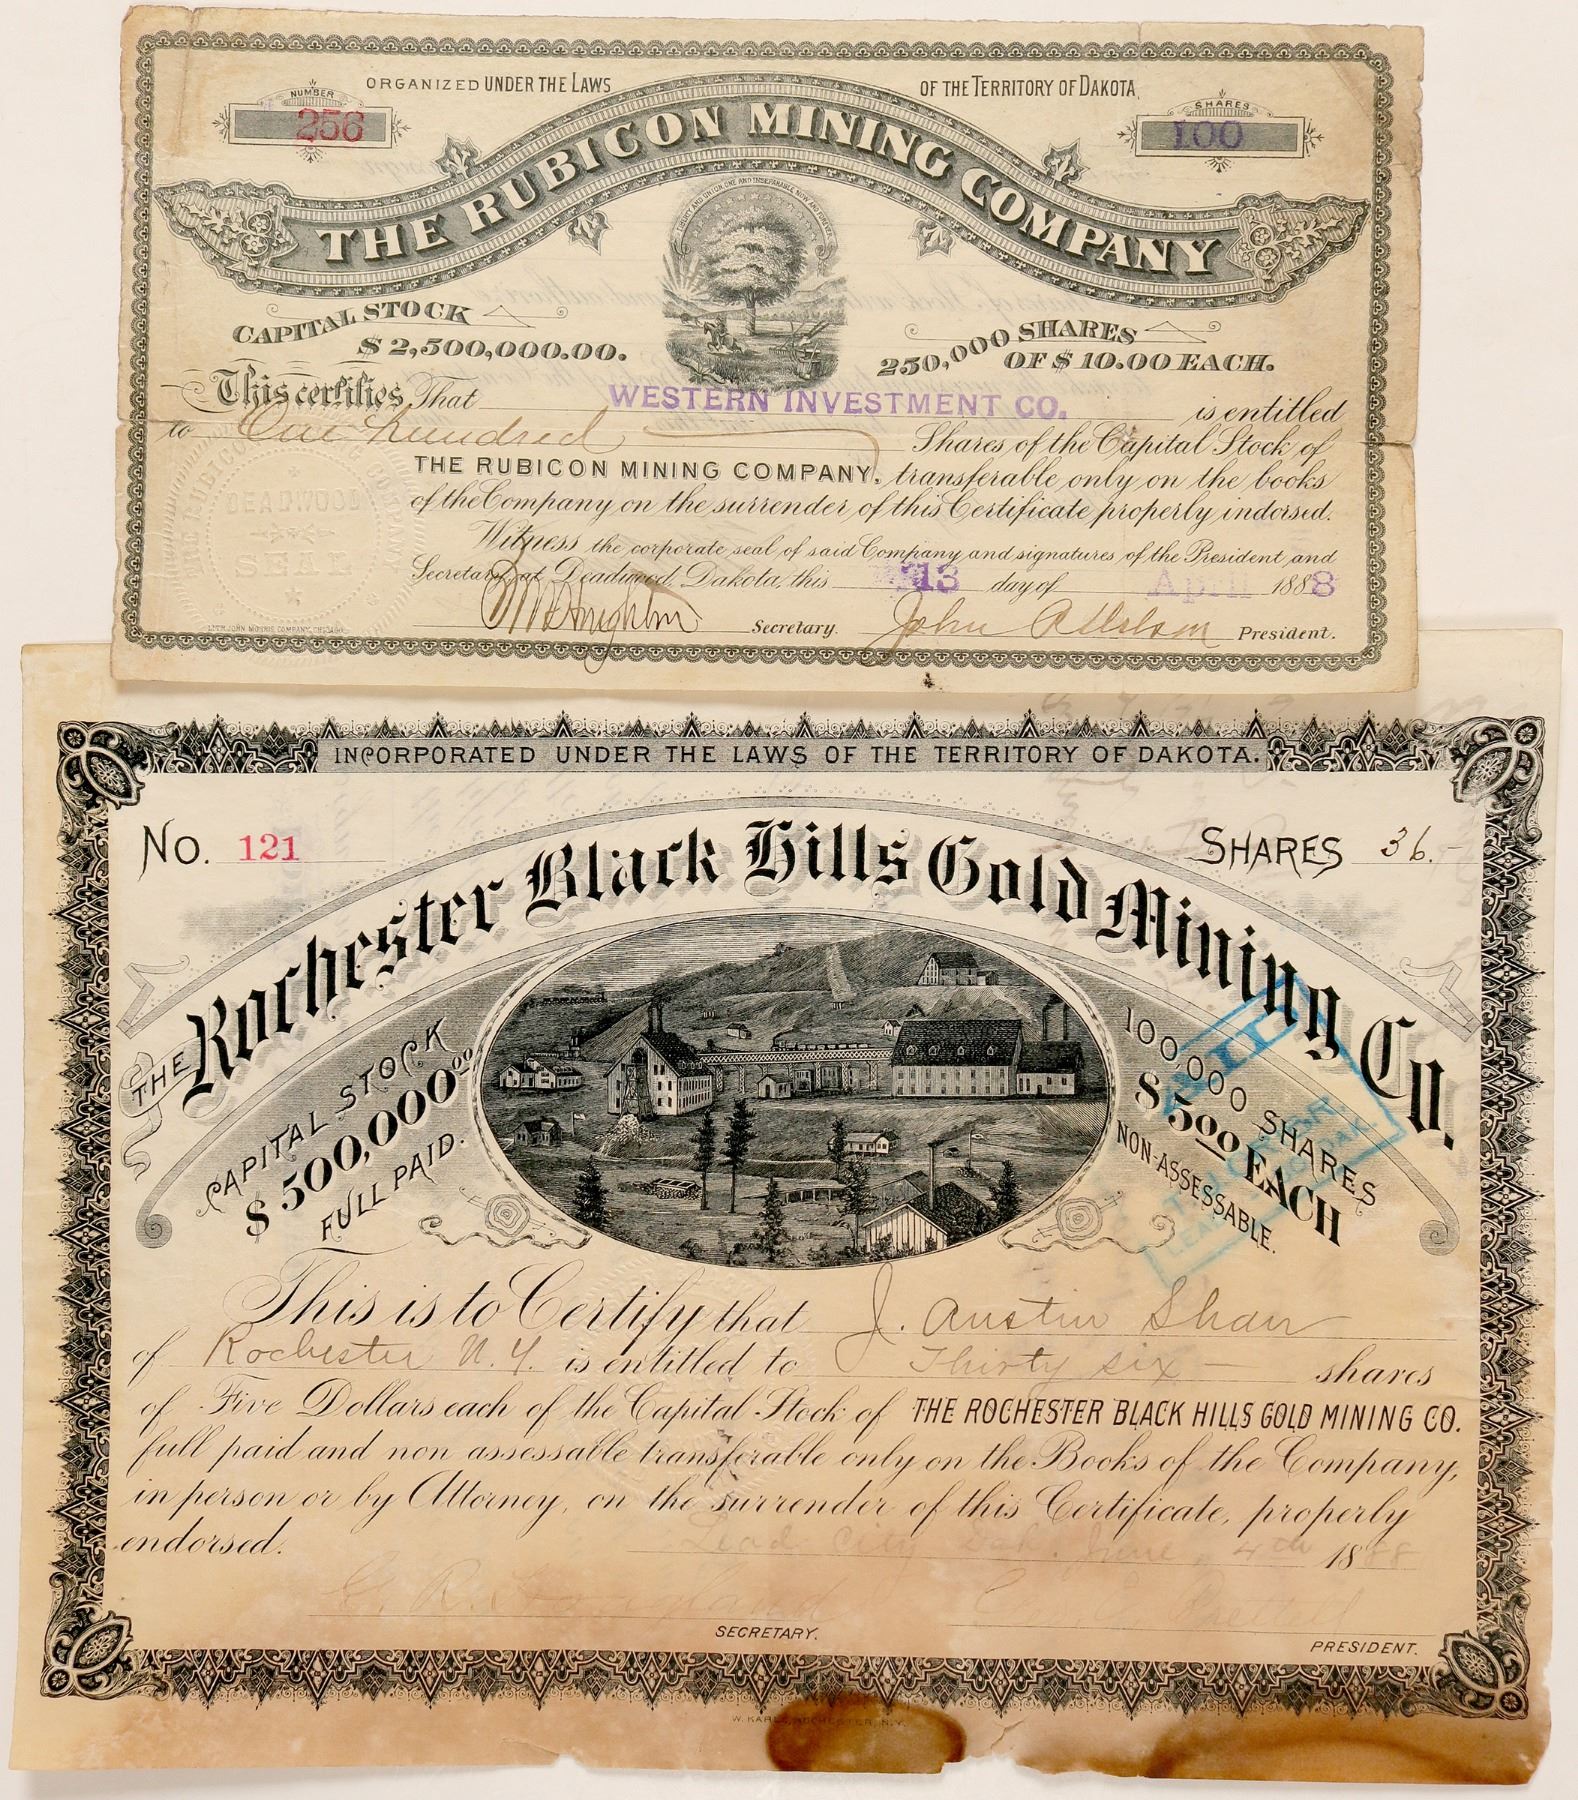 ORGANIZED UNDER THE LAWS OF THE TERRITORY OF DAKOTA
NUMBER
256
SHARES
100
THE RUBICON MINING COMPANY
LIBERTY AND UNION, ONE AND INSEPARABLE, NOW AND FOREVER
CAPITAL STOCK
$2,500,000.00.
250,000 SHARES
OF $10.00 EACH.
This certifies That WESTERN INVESTMENT CO. is entitled
to One hundred Shares of the Capital Stock of
THE RUBICON MINING COMPANY. transferable only on the books
of the Company on the surrender of this Certificate properly indorsed.
Witness the corporate seal of said Company and signatures of the President and
Secretary at Deadwood, Dakota, this 13 day of April 1888
Secretary. John President.
THE RUBICON MINING COMPANY
DEADWOOD
SEAL
LITH. JOHN MORRIS COMPANY, CHICAGO
INCORPORATED UNDER THE LAWS OF THE TERRITORY OF DAKOTA.
No. 121
SHARES 36.-
THE Rochester Black Hills Gold Mining Co.
CAPITAL STOCK
$500,000.00
FULL PAID.
100,000 SHARES
$5.00 EACH
NON-ASSESSABLE.
This is to Certify that J. Austin Shaw
of Rochester N.Y. is entitled to Thirty six shares
of Five Dollars each of the Capital Stock of THE ROCHESTER BLACK HILLS GOLD MINING CO.
full paid and non assessable transferable only on the Books of the Company,
in person or by Attorney, on the surrender of this Certificate, properly
endorsed. Lead City Dak. June 4th 1888
G. R.
SECRETARY.
PRESIDENT.
W. KARLE, ROCHESTER, N.Y.